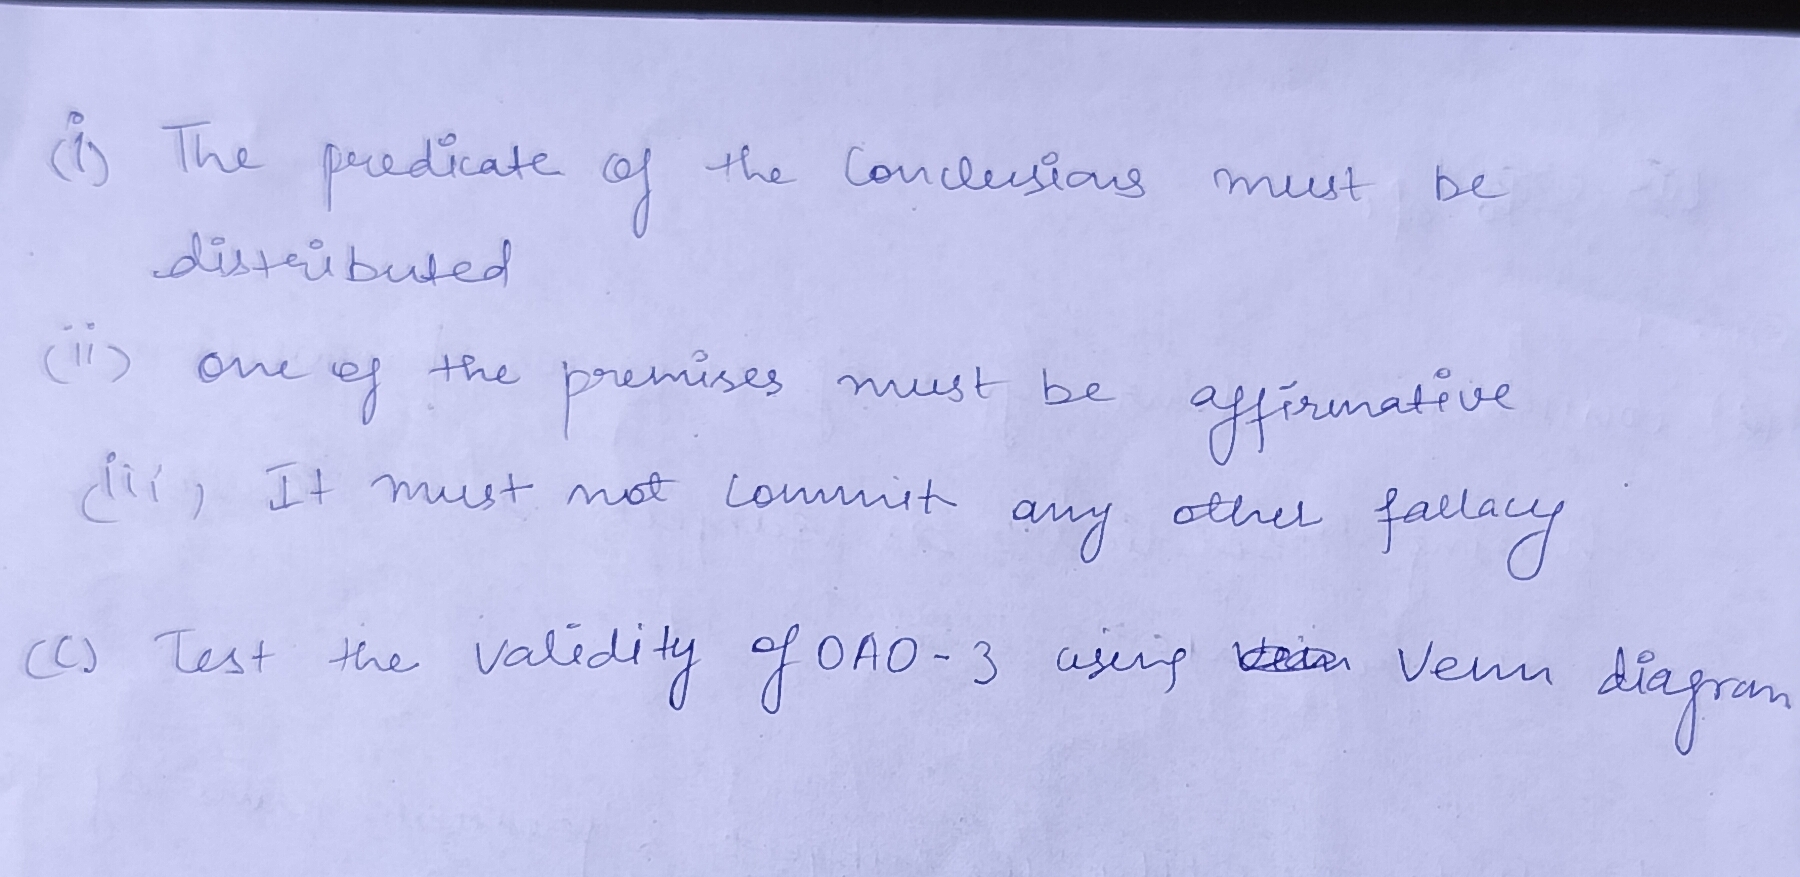 (i) The predicate of the Conclusions must be
distributed
(ii) one of the premises must be affirmative
(iii) It must not commit any other fallacy
(C) Test the validity of OAO-3 using Venn diagram